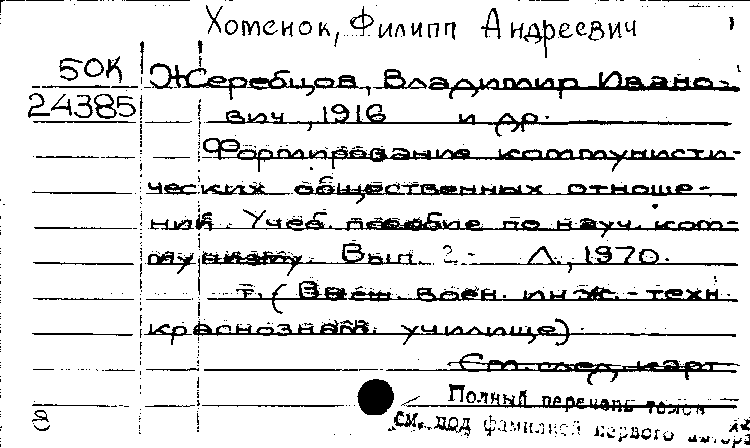 Хоменок, Филипп Андреевич
50К Жеребцов, Владимир Ивано-
24385 вич, 1916 и др.
Формирование коммунисти-
ческих общественных отноше-
ний. Учеб. пособие по науч. ком-
мунизму. Вып. 2.- Л., 1970.
т. (Высш. воен. инж.-техн.
краснознам. училище)
См. след. карт.
Полный перечень томов
см. под фамилией первого автора